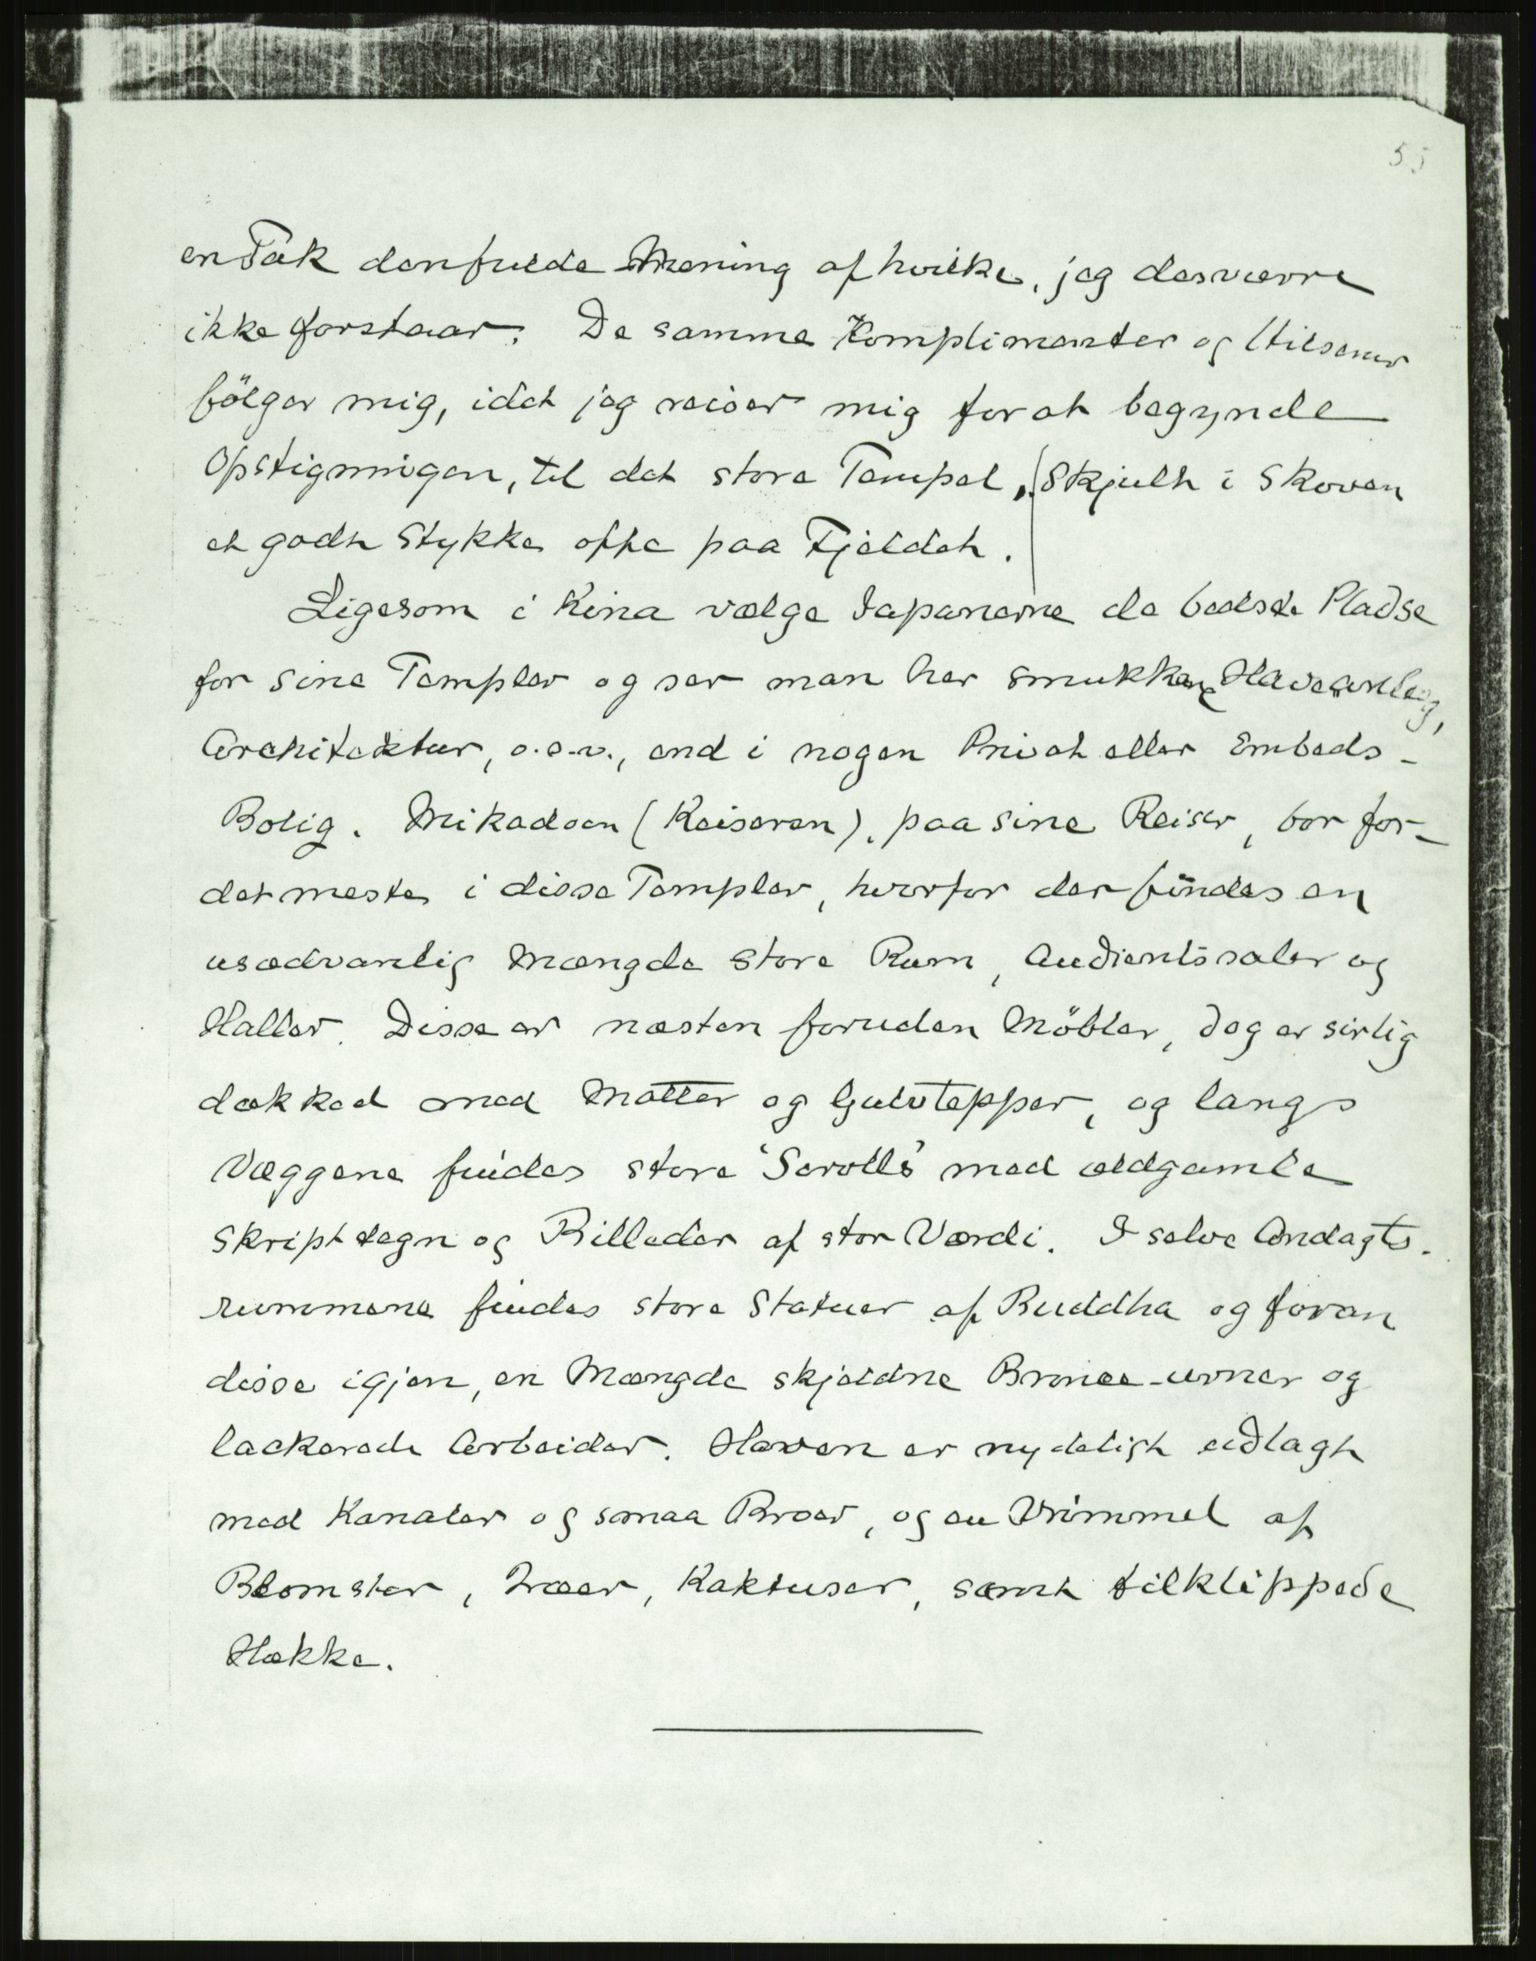 55
en Tak den fulde Mening af hvilke, jeg desværre
ikke forstaar. De samme Komplimenter og Hilsener
fölger mig, idet jeg reiser mig for at begynde
Opstigningen, til det store Tempel, skjult i Skoven
et godt Stykke oppe paa Fjeldet.
Ligesom i Kina vælge Japanerne de bedste Pladse
for sine Templer og ser man her smukkere Haveanlæg,
Architektur, o.s.v., end i nogen Privat eller Embeds-
Bolig. Mikadoen (Keiseren), paa sine Reiser, bor for-
det meste i disse Templer, hvorfor der findes en
usædvanlig Mængde store Rum, Audientssaler og
Haller. Disse er næsten foruden Möbler, dog er sirlig
dækked med Matter og Gulvtepper, og langs
Væggene findes store 'Scrolls' med ældgamle
Skripttegn og Billeder af stor Værdi. I selve Andagts-
rummene findes store Statuer af Buddha og foran
disse igjen, en Mængde skjeldne Bronce-urner og
lackerede Arbeider. Haven er nydeligt udlagt
med Kanaler og smaa Broer, og en Vrimmel af
Blomster, Træer, Kaktuser, samt tilklippede
Hække.